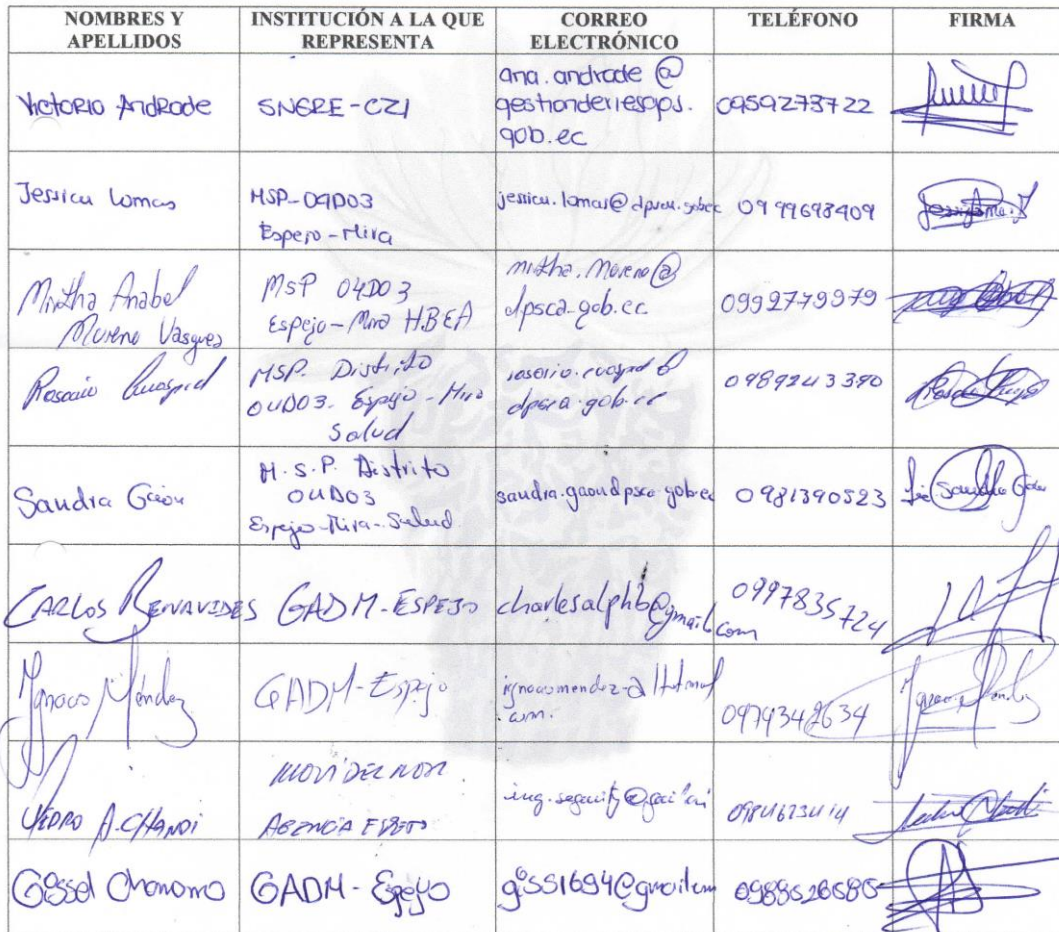 NOMBRES Y APELLIDOS
INSTITUCIÓN A LA QUE REPRESENTA
CORREO ELECTRÓNICO
TELÉFONO
FIRMA
Victoria Andrade
SNGRE-CZ1
ana.andrade@
gestionderiesgos.
gob.ec
0959273722
Jessica Lomas
MSP-04D03
Espejo-Mira
jessica.lomas@dpsca.gobec
0999693409
Mirtha Anabel
Moreno Vasquez
MSP 04D03
Espejo-Mira HBEA
mirtha.moreno@
dpsca.gob.ec
0992779979
Rosario Cuaspud
MSP. Distrito
04D03. Espejo-Mira
Salud
rosario.cuaspud@
dpsca.gob.ec
0989243390
Sandra Gaon
M.S.P. Distrito
04D03
Espejo-Mira-Salud
sandra.gaondpsca.gob.ec
0981390523
CARLOS BENAVIDES
GADM-ESPEJO
charlesalphb@gmail.com
0997835724
Ignacio Méndez
GADM-Espejo
ignaciomendez-@Hotmail
.com.
0979342634
PEDRO A. CHANDI
MOVIDELNOR
AGENCIA ESPEJO
0984623414
GADM-Espejo
0988526585